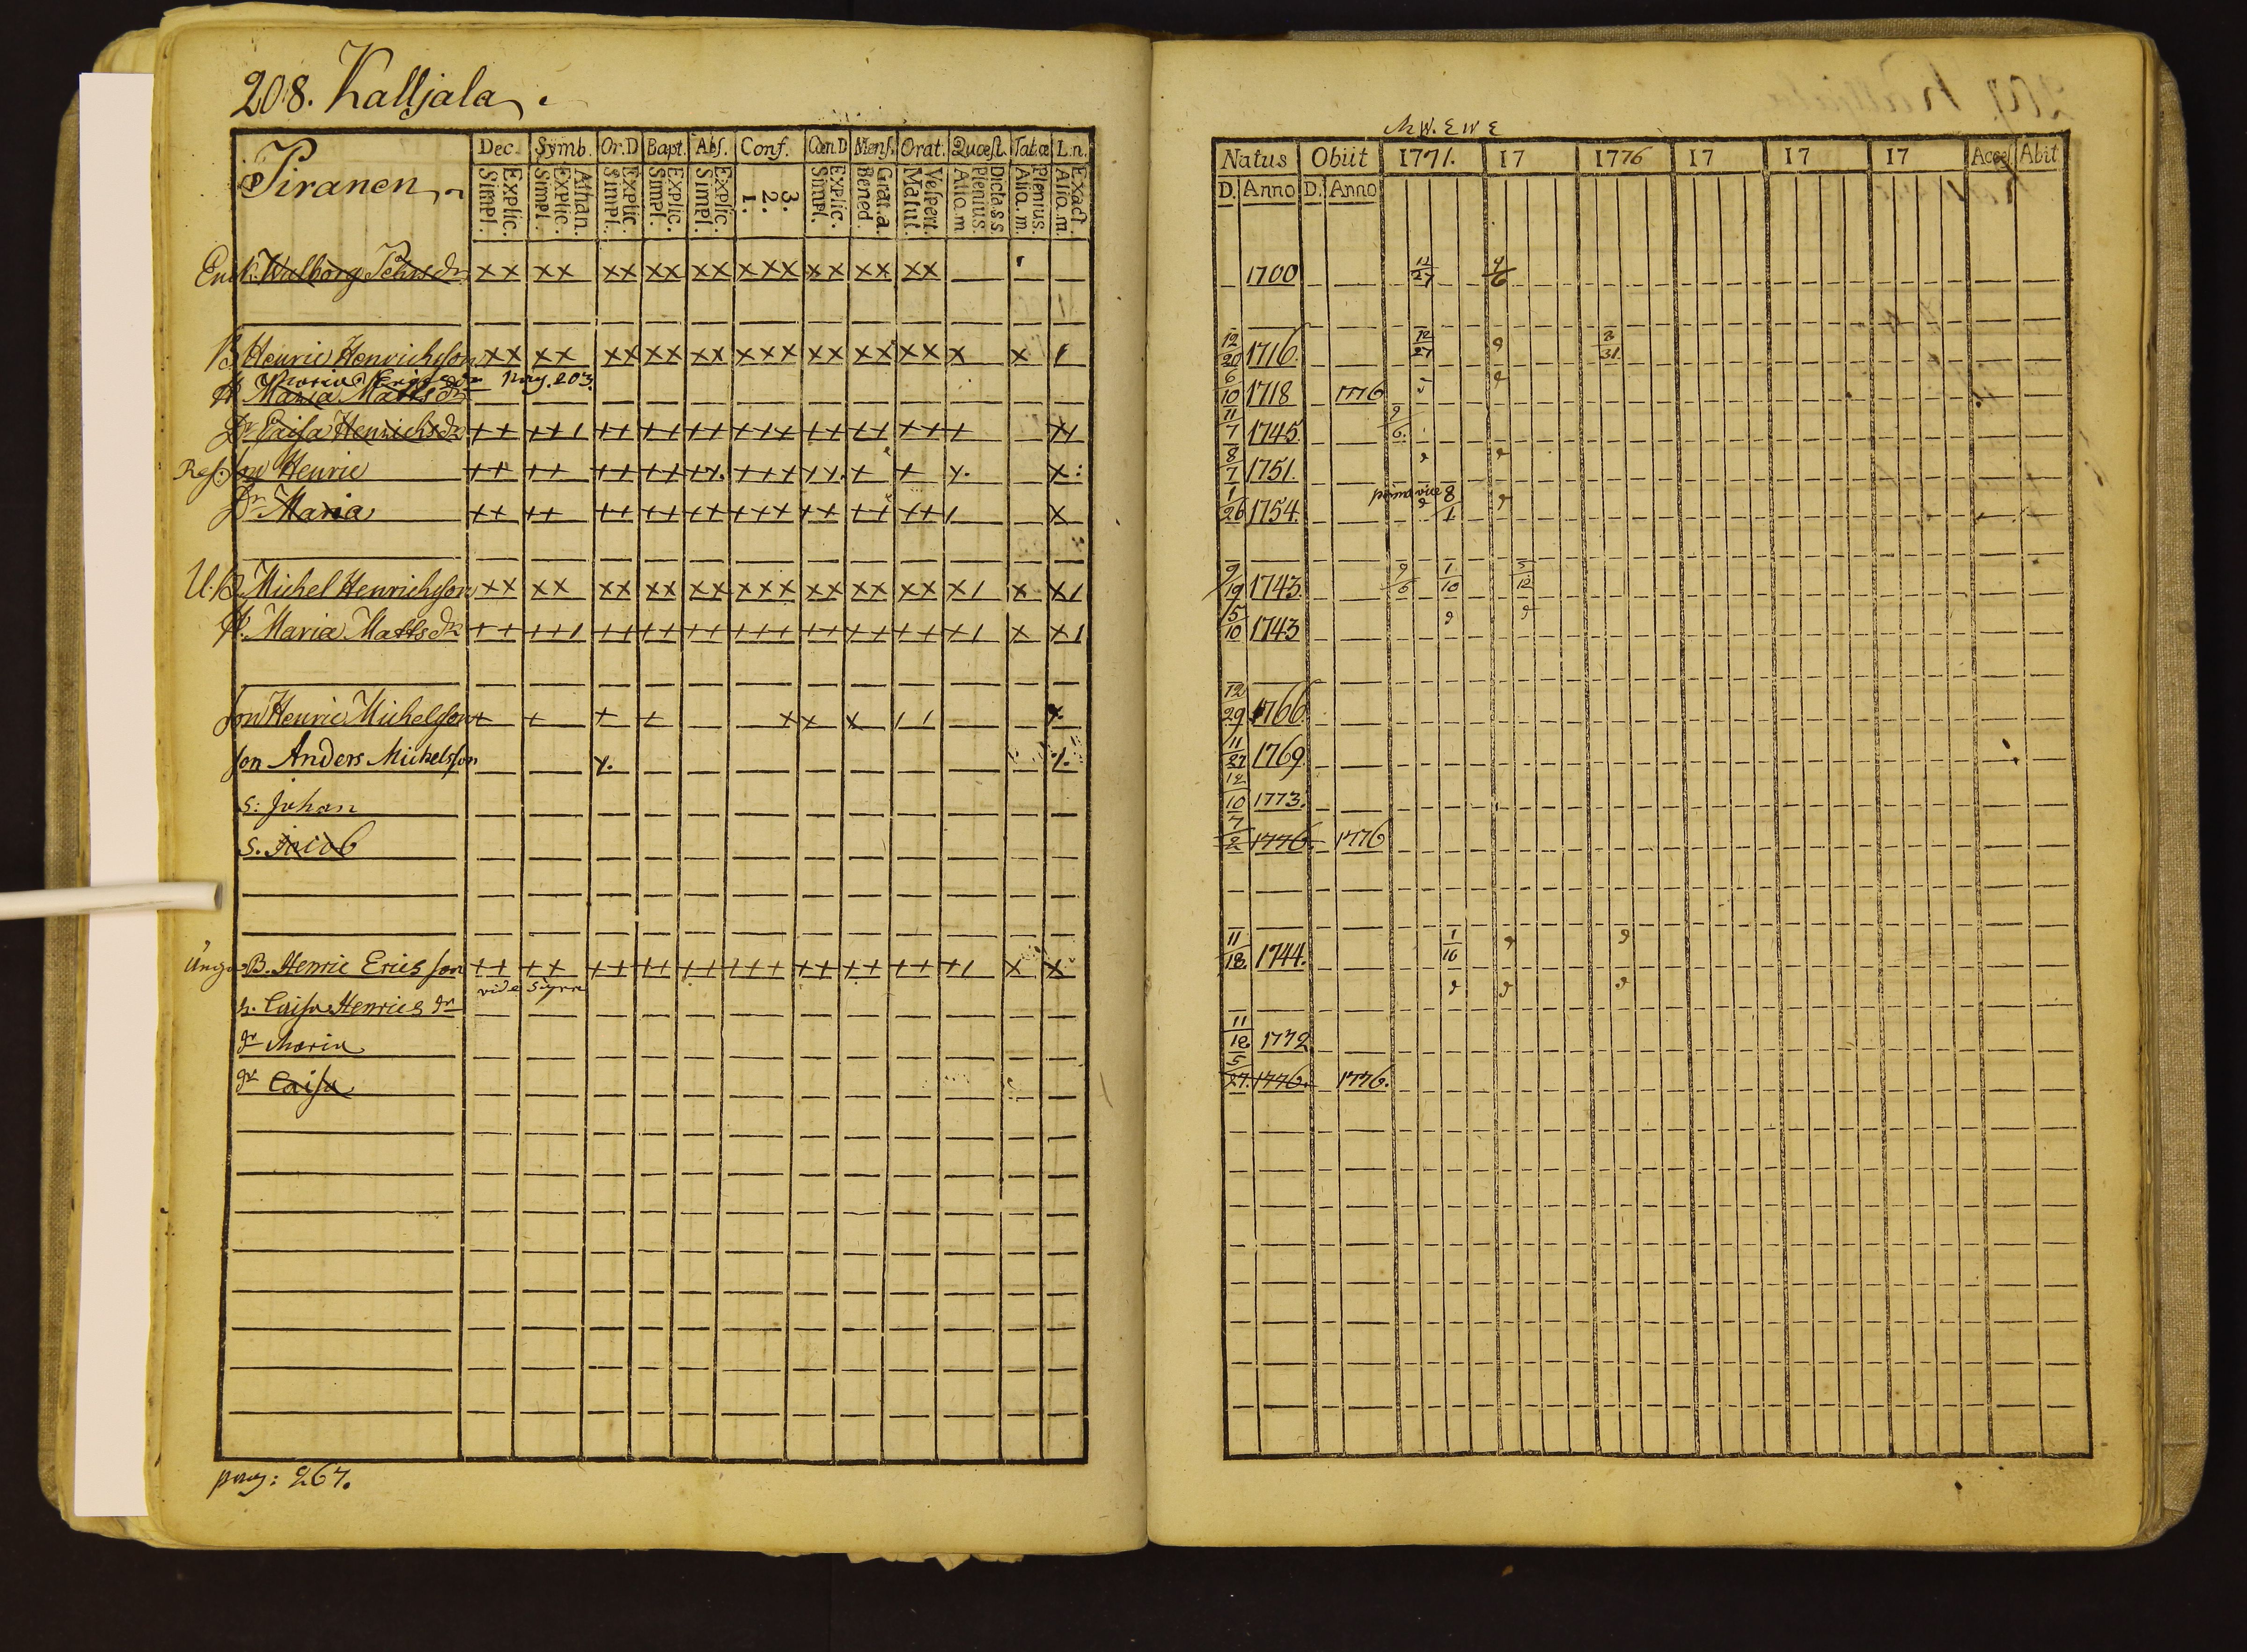 208. Kalljala.
Piranen
Dec. Symb. Or.D Bapt. Abſ. Conf. Cœn.D Menſ. Orat. Quæſt. Tabæ L.n.
Simpl. Explic. Simpl. Explic. Athan. Simpl. Explic. Simpl. Explic. Simpl. Explic. 1. 2. 3. Simpl. Explic. Bened. Grat.a. Matut. Veſpert. Alio.m Plenius. Dicta.s.s Alio.m. Plenius. Alio.m. Exact.
Enck. Walborg
B Henric Henrichsson
H Maria pag. 203.
H Maria Matts dr
Dr Caisa Henrichs dr
Ref. son Henric
Dr Maria
U.B. Michel Henrichsson
H. Maria Matts dr
son Henric Michelsson
son Anders Michelsson
s: Johan
s. Jacob
B. Henric Erics son
vide
h. Caisa Henrics dr
dr Maria
dr Caisa
pag: 267.
Natus Obiit 1771. 17 1776 17 17 17 Acceſ. Abit
D. Anno D. Anno
1700 11/27 4/6
12/20 1716. 12/27 3/31
6/10 1718 1776
11/7 1745. 9/6.
8/7 1751.
1/26 1754. prima vice 8/1
9/19 1743. 9/6 1/10 5/12
5/10 1743
12/29 1766.
11/27 1769
12/10 1773.
7/2 1776 1776
11/18. 1744. 1/16
11/18 1772
5/27. 1776. 1776.